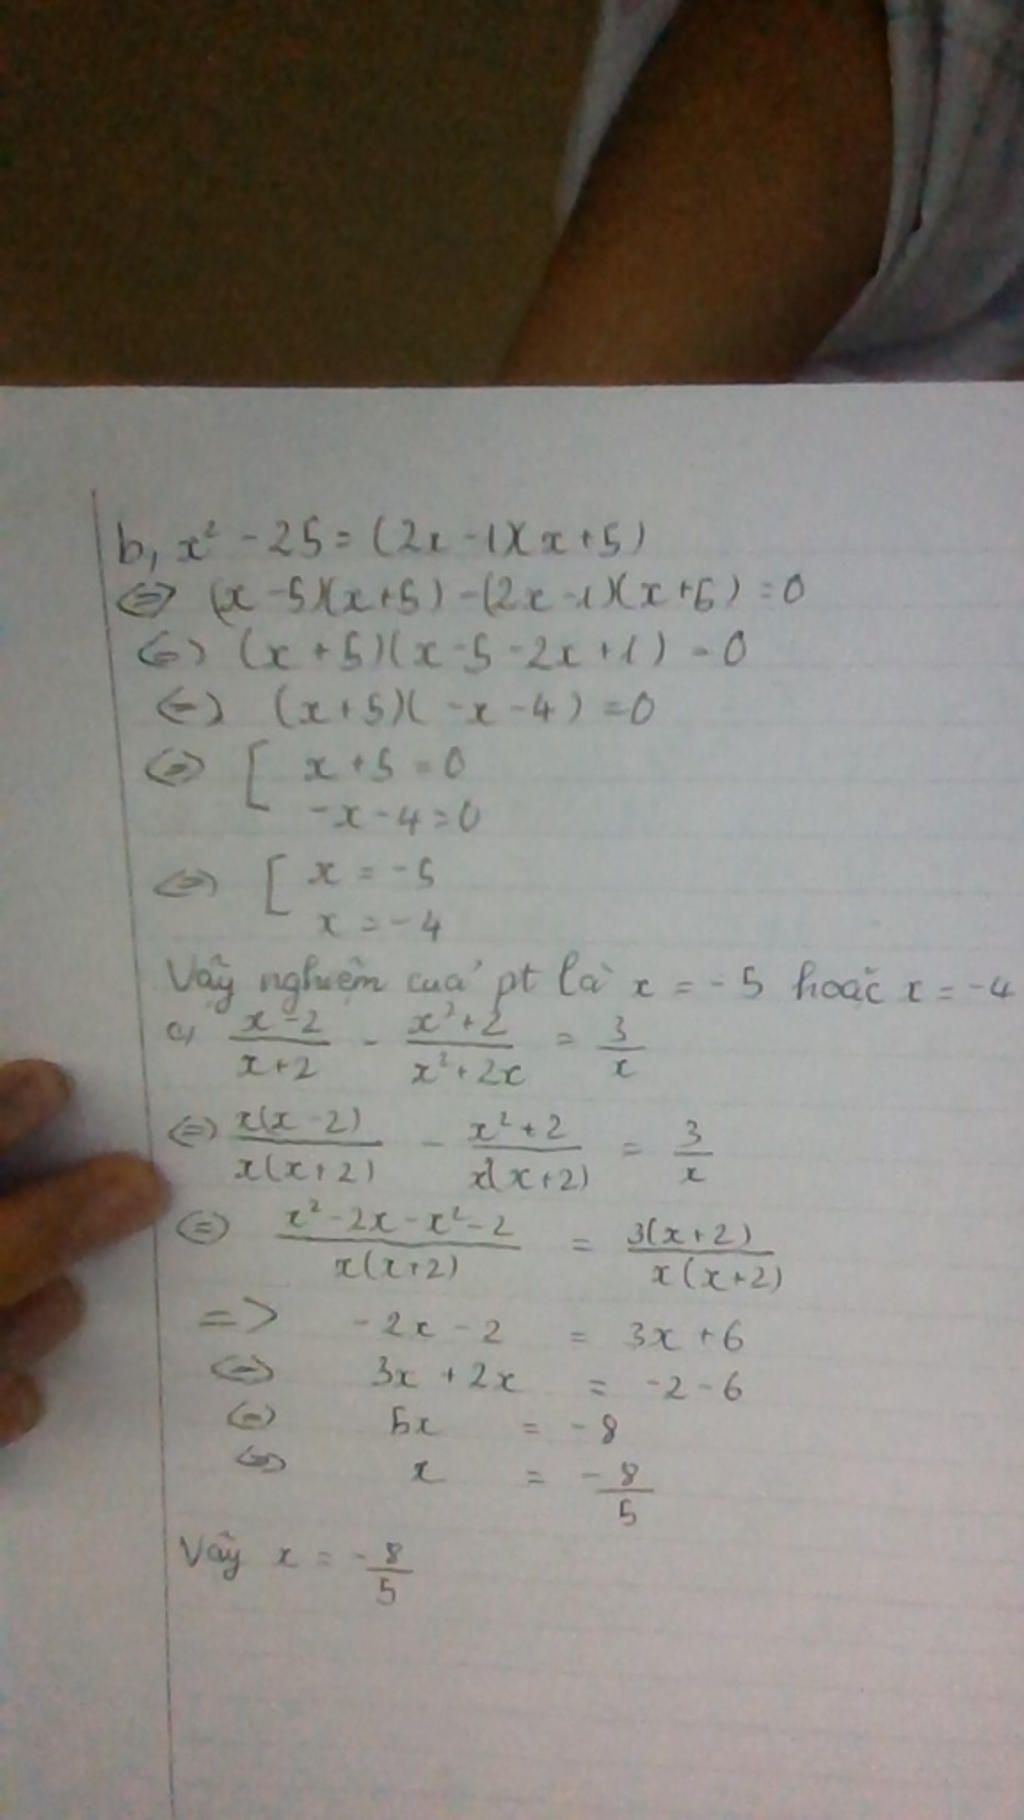 b, x² - 25 = (2x - 1)(x + 5)
<=> (x - 5)(x + 5) - (2x - 1)(x + 5) = 0
<=> (x + 5)(x - 5 - 2x + 1) = 0
<=> (x + 5)(-x - 4) = 0
<=> [ x + 5 = 0
-x - 4 = 0
<=> [ x = -5
x = -4
Vậy nghiệm của pt là x = -5 hoặc x = -4
c, (x - 2)/(x + 2) - (x² + 2)/(x² + 2x) = 3/x
<=> x(x - 2)/x(x + 2) - (x² + 2)/x(x + 2) = 3/x
<=> (x² - 2x - x² - 2)/x(x + 2) = 3(x + 2)/x(x + 2)
=> -2x - 2 = 3x + 6
<=> 3x + 2x = -2 - 6
<=> 5x = -8
<=> x = -8/5
Vậy x = -8/5